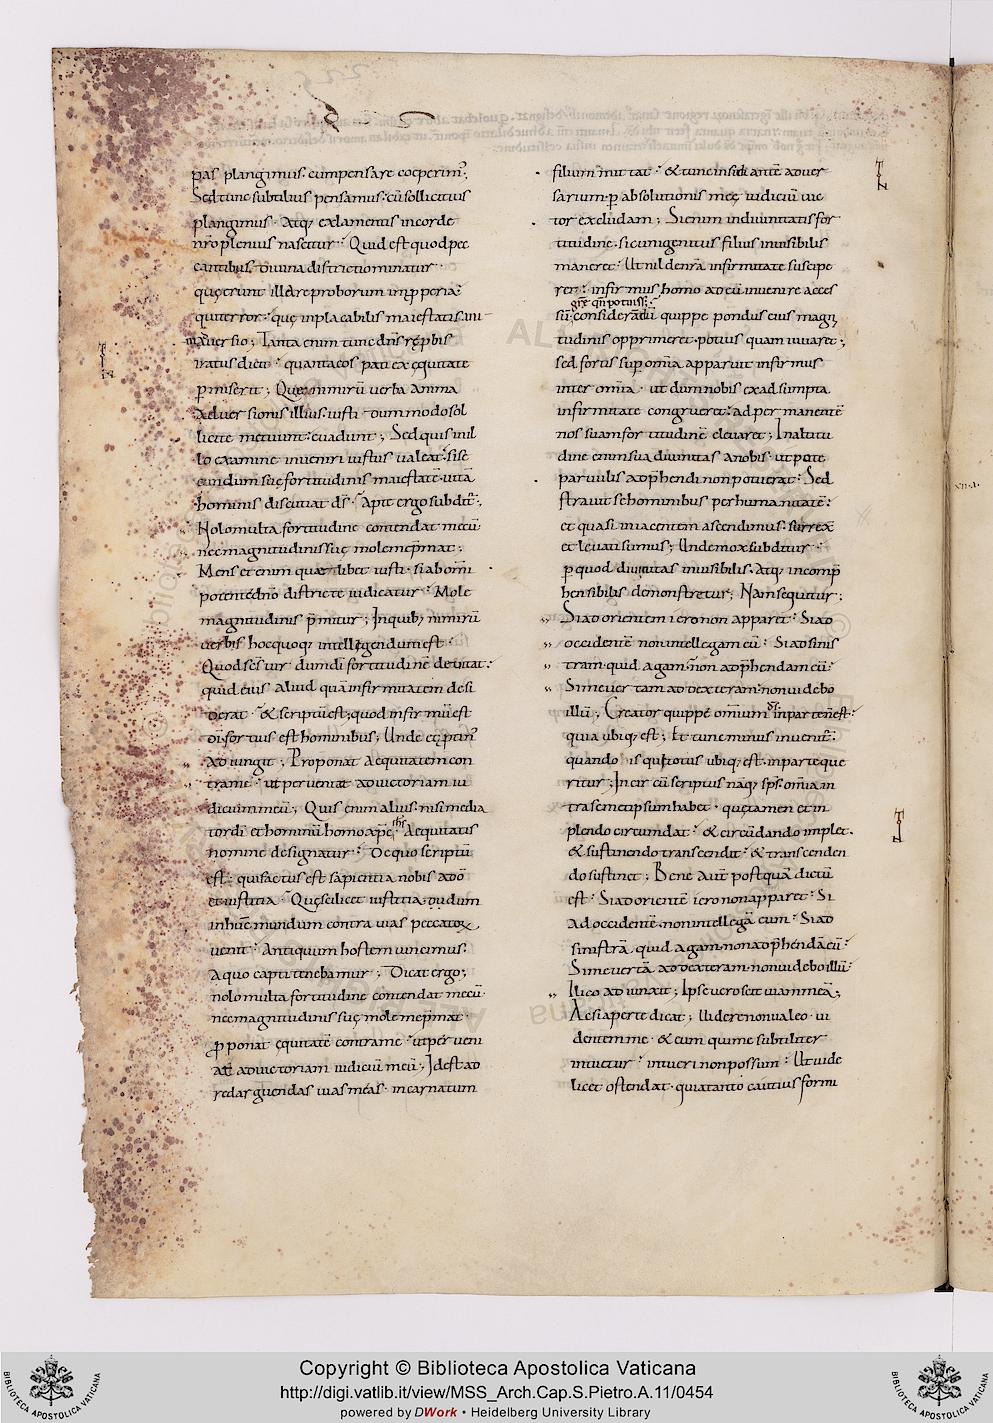 pas plangimus. cumpensare coeperim᷒.
Sedtunc subtilius pensamus. cū sollicitius
plangimus. Atq; exlamentis incorde
nr̄o plenius nascitur. Quid est quod pec
cantibus. divina districtio minatur.
quę erunt illa reproborum
qui terror. quę inplacabilis maiestatis.
aversio; Tanta enim tunc dn̄s
iratus dicit. quanta eos pati ex ęquitate
pmiserit; Que nimirū verba anima
adversionis illius. iusti. dum modo sol
licite metuunt. evadunt; Sed quis in il
lo examine inveniri iustus valeat. si se
cundum suę fortitudinis maiestatē. vitā
hominis discutiat ds̄. Apte ergo subdit᷒.
Nolo multa fortitudine contendat mecū.
nec magnitudinis suę mole me p̄mat.
Mens et enim quae libet iusti. si ab om̄i
potente dn̄o districte iudicatur. Mole
magnitudinis p̄mitur; In quib; nimirū
verbis hoc quoq; intellegendum est.
Quod sc̄s vir dum dī fortitudinē devitat.
quid eius aliud quā infirmitatem desi
derat. & scriptū est; quod infirmū est
dī. fortius est hominibus; Unde &
adiungit; Proponat aequitatem con
tra me. ut perveniat ad victoriam iu
dicium meū; Quis enim alius. nisi media
tor dī et hominū homo xp̄c ihs̄ Aequitatis
nomine designatur. De quo scriptū
est. qui factus est sapientia nobis a dō
et iustitia. Quę scilicet iustitia. dum
in hunc mundum contra vias peccatoꝝ
venit. Antiquum hostem vincimus.
A quo capti tenebamur; Dicat ergo;
nolo multa fortitudine contendat mecū.
nec magnitudinis suę mole me p̄mat.
Pponat ęquitatē contra me. ut per veni
at ad victoriam iudiciū meū. Id est ad
redarguendas vias meas. incarnatum
filium mittat. & tunc insidiantē adver
sarium. p absolutionis meę iudiciū vic
tor excludam; Si enim in divinitatis for
titudine. sic unigenitus filius invisibilis
maneret. Ut nil de nr̄a infirmitate suscipe
ret. infirmus homo ad eū invenire acces
sū
considerādū quippe pondus eius magni
tudinis opprimeret. potius quam iuvaret;
sed fortis sup om̄ia. apparuit infirmus
inter om̄ia. ut dum nobis ex adsumpta
infirmitate congrueret. ad permanentē
nos suam fortitudinē elevaret; In altitu
dine enim sua divinitas a nobis. utpote
parvulis adp̄hendi non poterat. Sed
stravit se hominibus per humanitatē.
et quasi in iacentem ascendimus. surrexit
et levati sumus; Unde mox subditur.
p quod divinitas invisibilis. atq; incomp̄
hensibilis demonstretur; Nam sequitur;
Si ad orientem iero non apparet. Si ad
occidentē non intellegam eū. Si ad sinis
tram. quid agam. non adp̄hendam eū.
Si me vertam ad dexteram. non videbo
illū; Creator quippe omnium in parte n̄ est.
quia ubiq; est; Et tunc minus invenit᷒.
quando is qui totus ubiq; est. in parte que
ritur; In cir cū scriptus naq; sps̄. om̄ia in
tra semetipsum habet. quę tamen et in
plendo circumdat. & circūdando implet.
& sustinendo transcendit. & transcenden
do sustinet; Bene autē postquā dictū
est. Si ad orientē iero non apparet. Si
ad occidentē. non intellegā eum. Si ad
sinistrā quid agam. non adp̄hendā eū.
Si me vertā ad dexteram. non videbo illū.
Ilico adiunxit; Ipse vero scit viam meā;
Ac si aperte dicat; Videre non valeo. vi
dentem me. & eum qui me subtiliter
intuetur. intueri non possum. Ut vide
licet ostendat. quia tanto cautius formi
Copyright © Biblioteca Apostolica Vaticana
http://digi.vatlib.it/view/MSS_Arch.Cap.S.Pietro.A.11/0454
powered by DWork • Heidelberg University Library
BIBLIOTECA APOSTOLICA VATICANA
BIBLIOTECA APOSTOLICA VATICANA